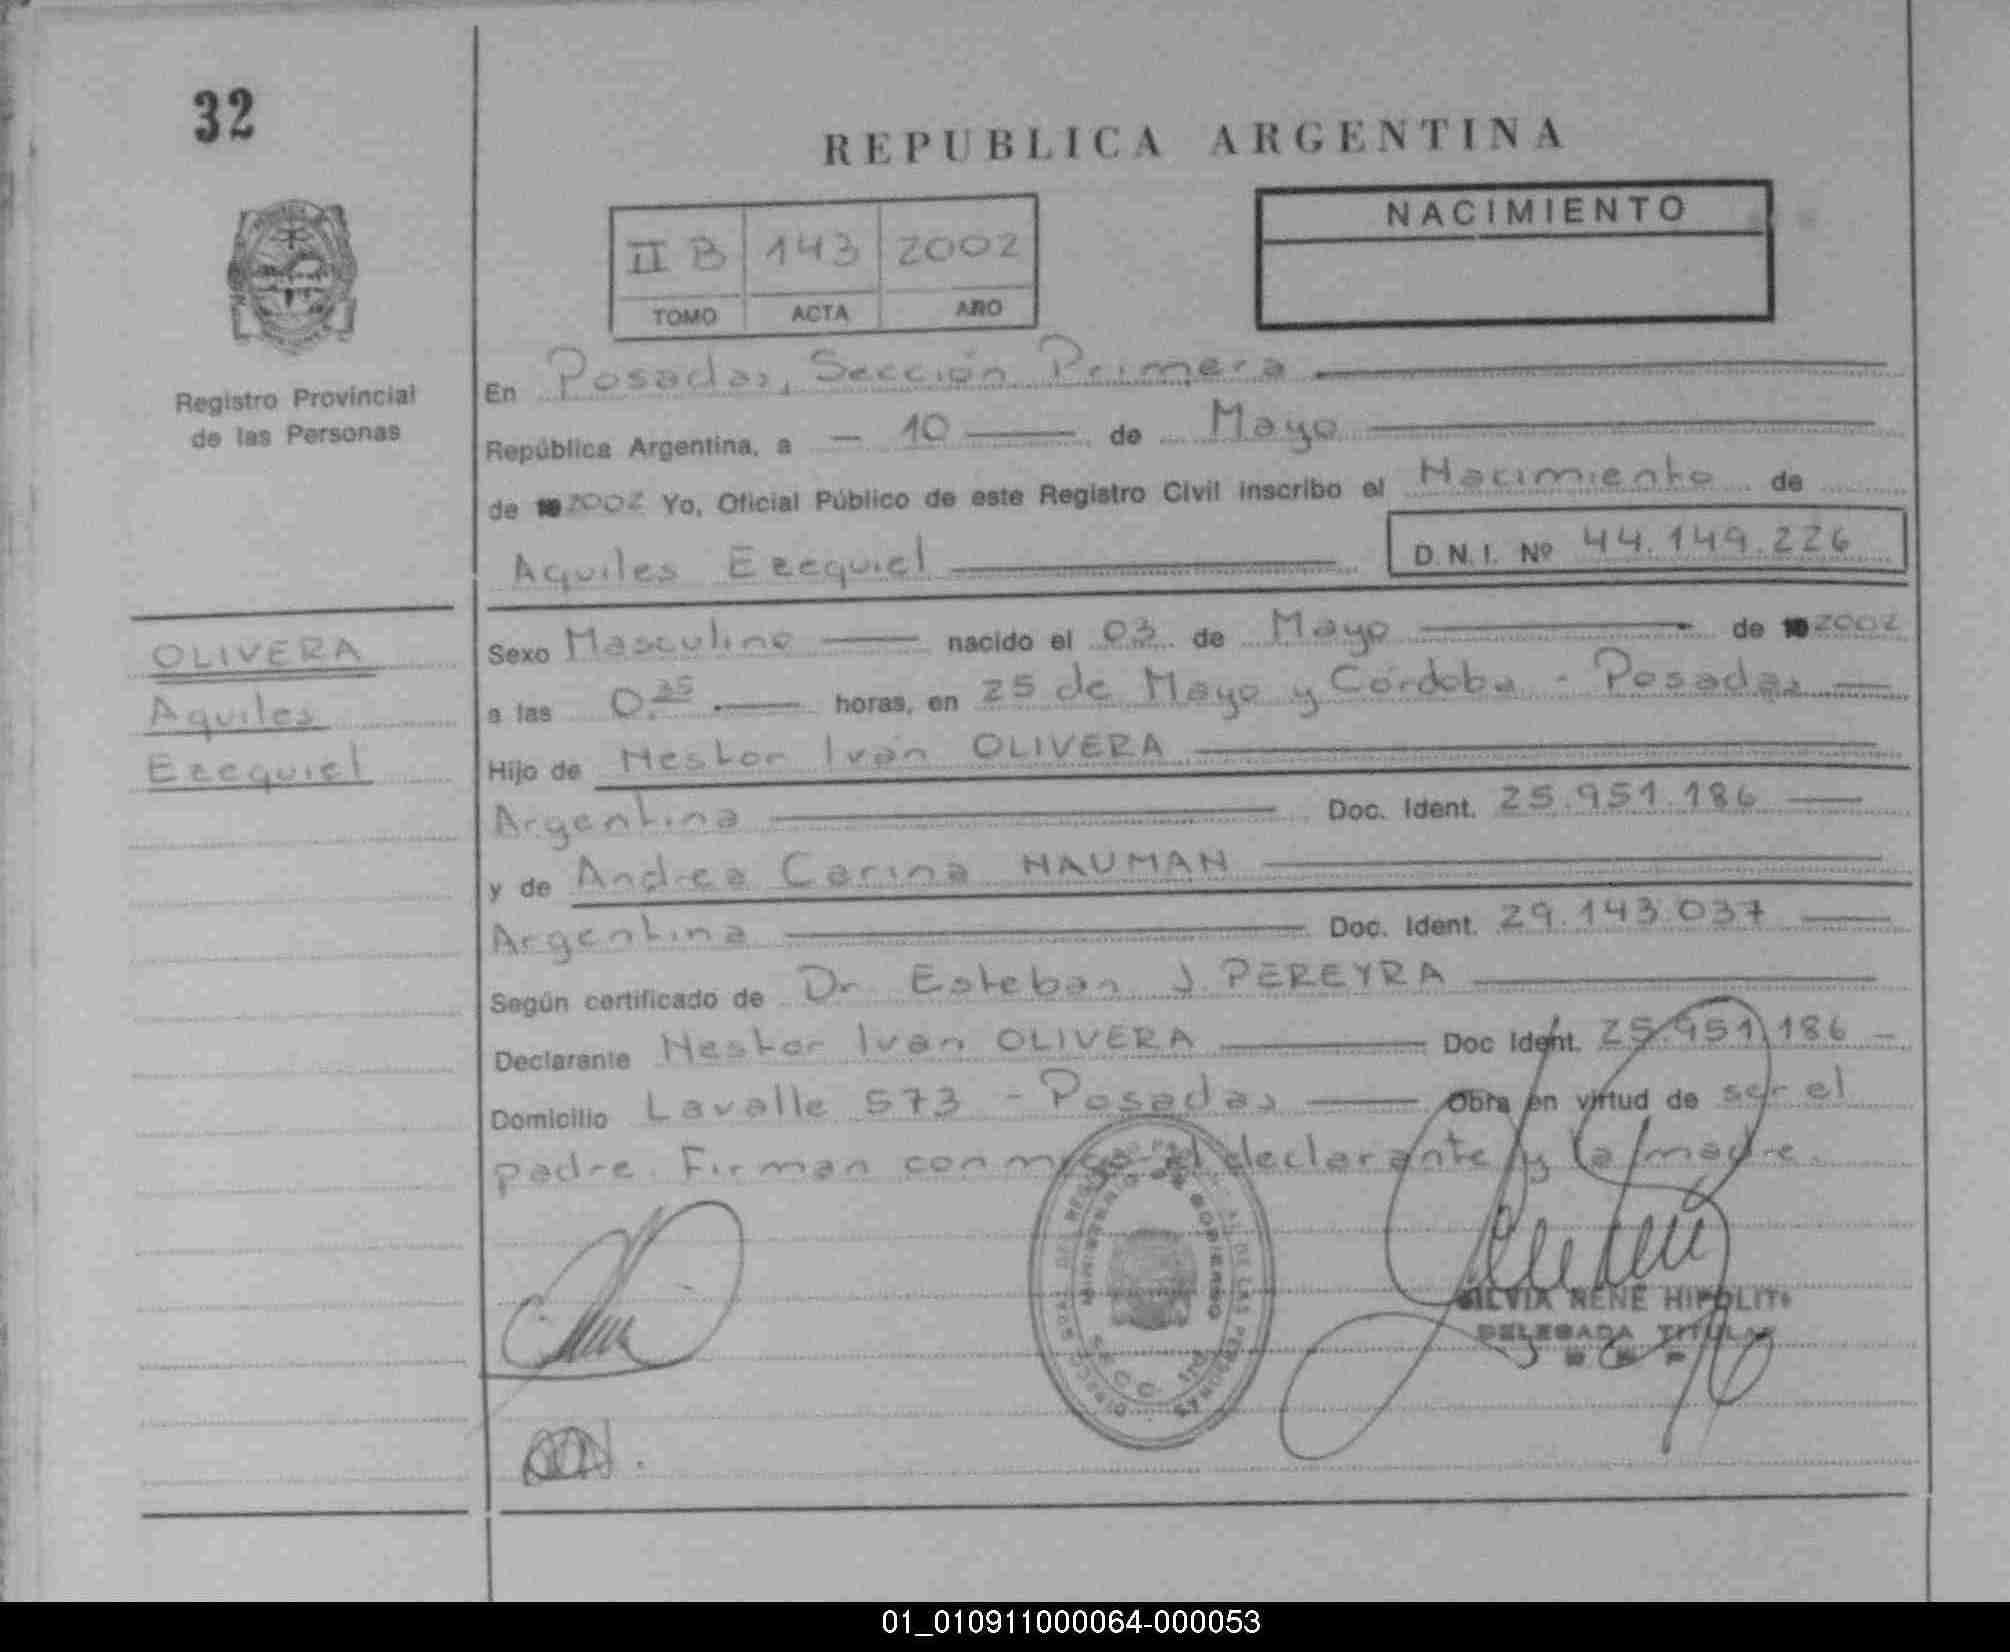 32
REPUBLICA ARGENTINA
NACIMIENTO
II B 143 2002
TOMO ACTA AÑO
Registro Provincial
de las Personas
En Posadas, Sección Primera
República Argentina, a - 10 de Mayo
de 2002 Yo, Oficial Público de este Registro Civil inscribo el Nacimiento de
Aquiles Ezequiel D.N.I. Nº 44.149.226
OLIVERA
Aquiles
Ezequiel
Sexo Masculino nacido el 03 de Mayo de 2002
a las 0.35 horas, en 25 de Mayo y Córdoba - Posadas
Hijo de Nestor Iván OLIVERA
Argentina Doc. Ident. 25.951.186
y de Andrea Carina NAUMAN
Argentina Doc. Ident. 29.143.037
Según certificado de Dr. Esteban J. PEREYRA
Declarante Nestor Iván OLIVERA Doc Ident. 25.951.186 -
Domicilio Lavalle 573 - Posadas Obra en virtud de ser el
padre. Firman conmigo el declarante y la madre.
MINISTERIO DE GOBIERNO
SILVIA RENÉ HIPOLITO
DELEGADA TITULAR
01_010911000064-000053